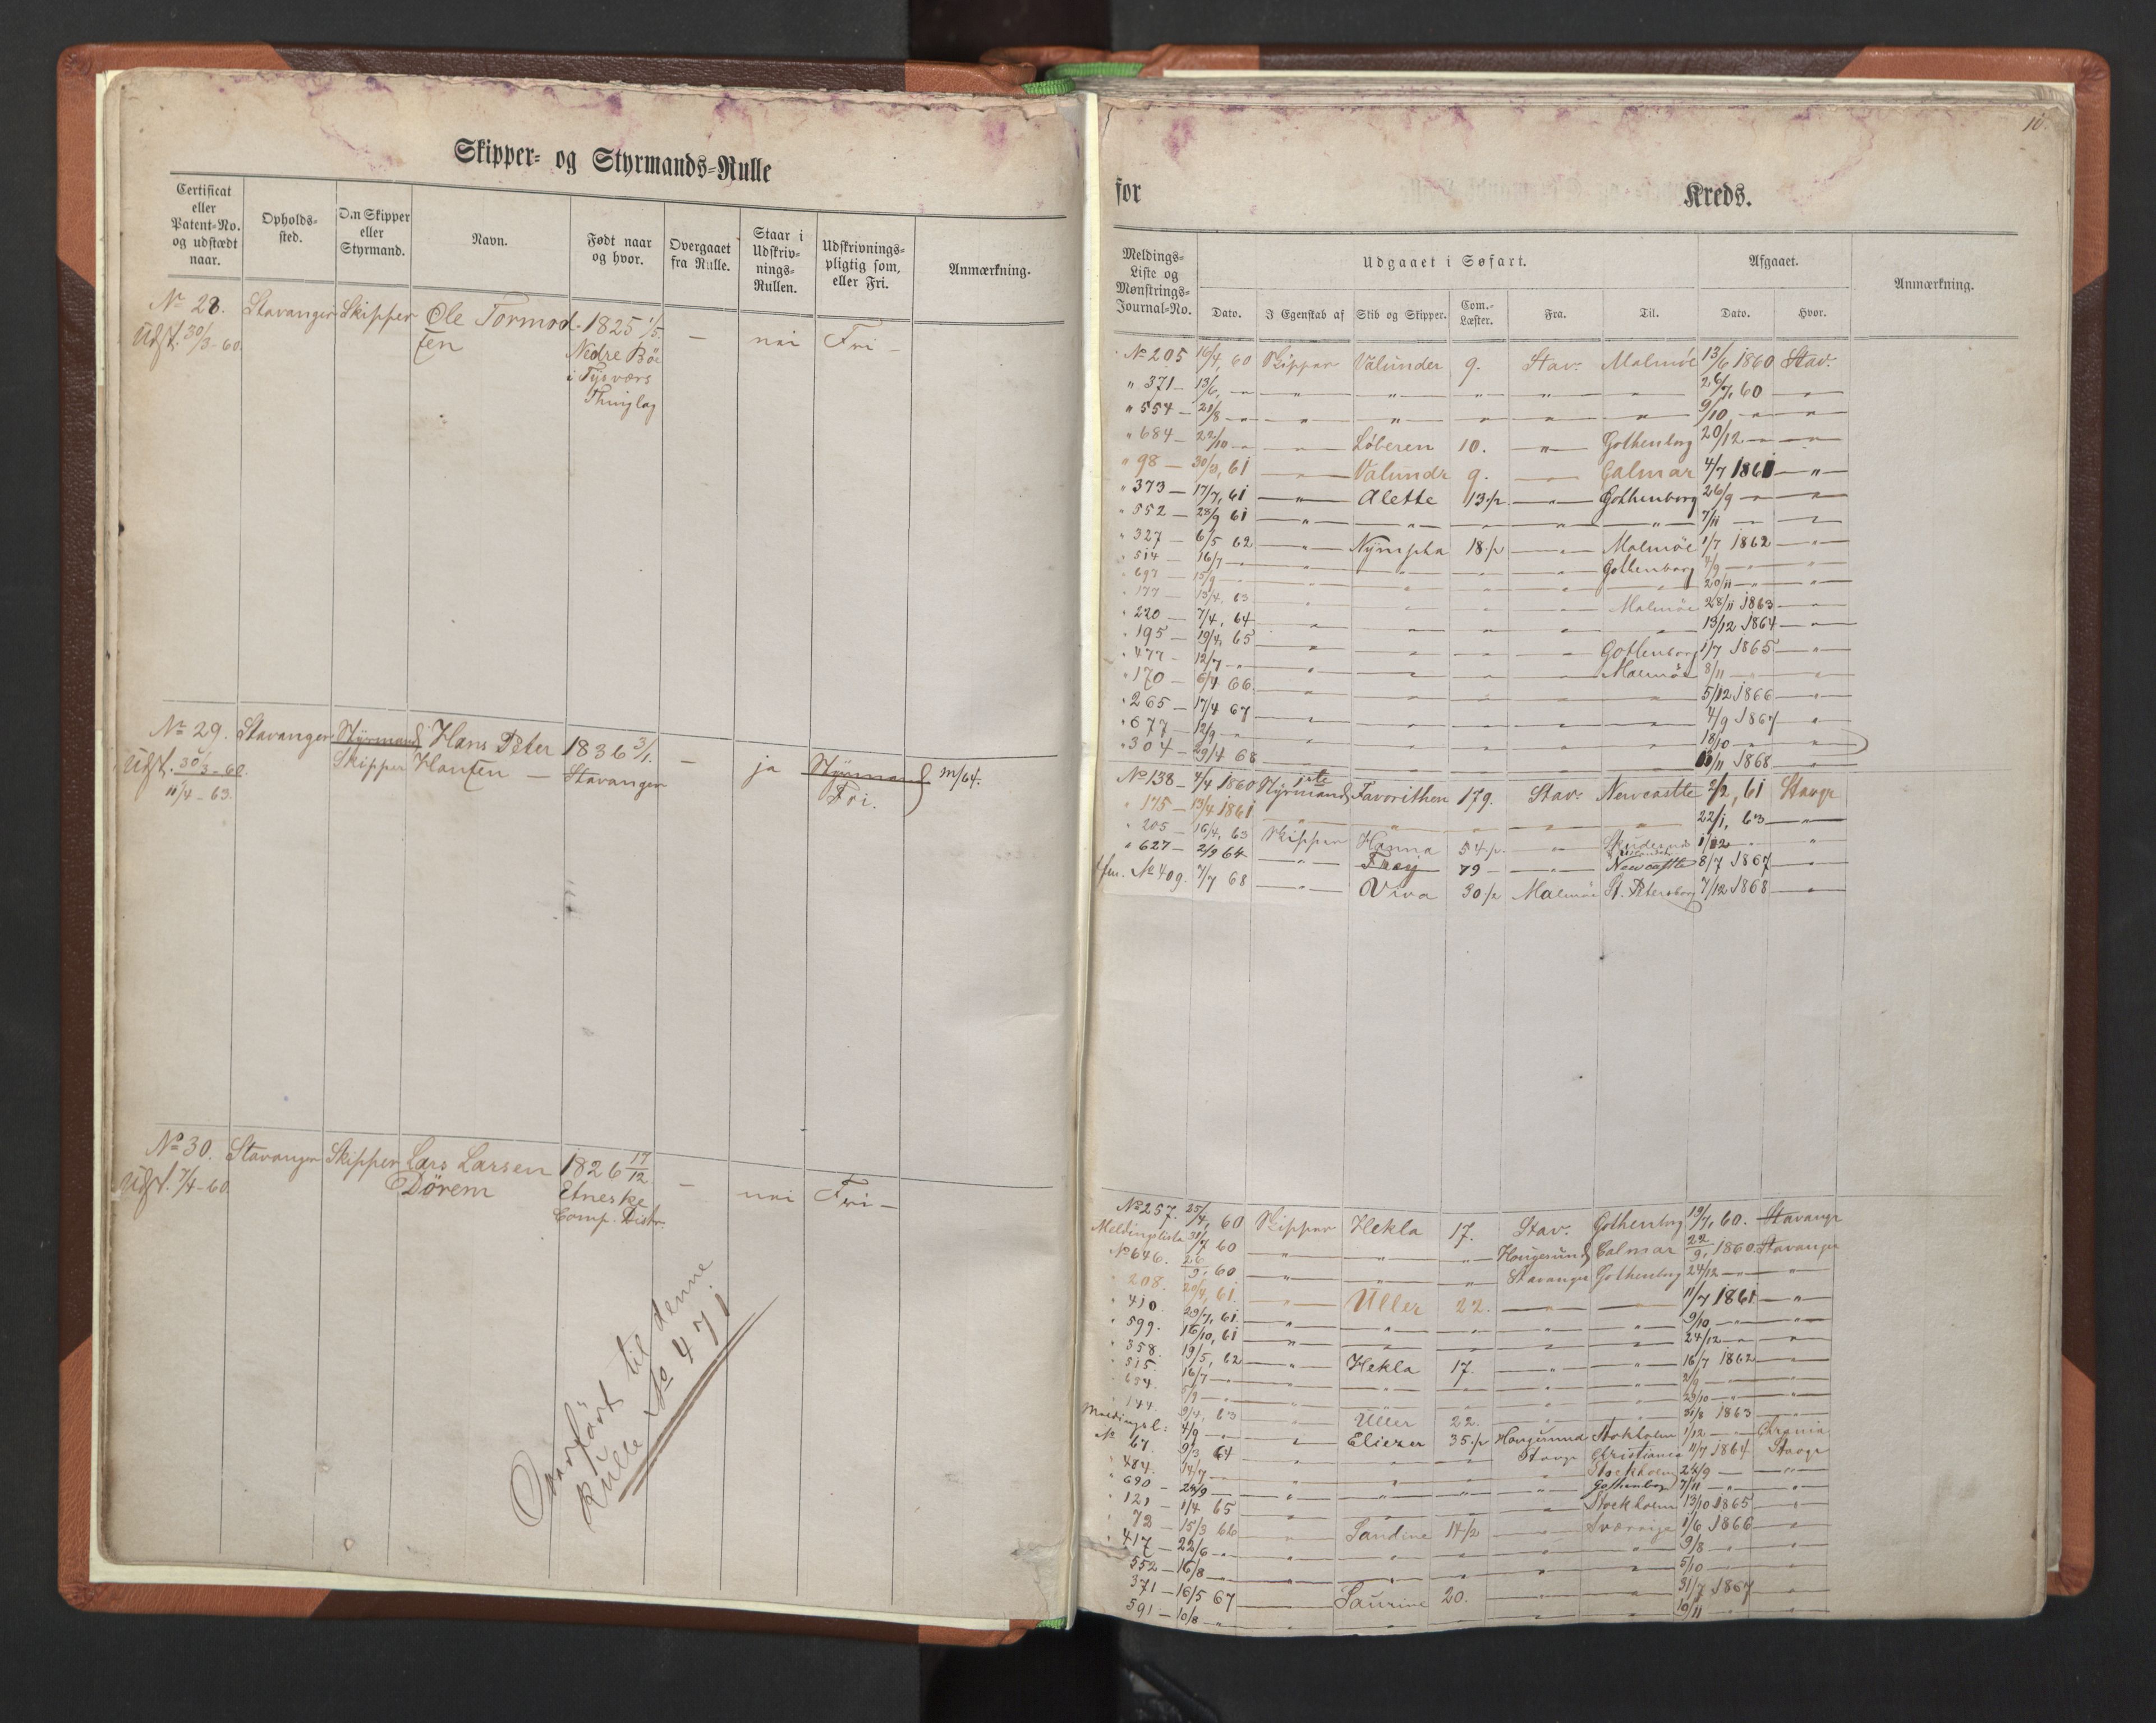 Skipper- og Styrmands-Rulle
Certificat eller Patent-No. og udstædt naar.
Opholds-sted.
Om Skipper eller Styrmand.
Navn.
Født naar og hvor.
Overgaaet fra Rulle.
Staar i Udskriv-nings-Rullen.
Udskrivnings-pligtig som, eller Fri.
Anmærkning.
No 28. Stavanger Skipper Ole Tormod- 1825 1/5. — nei Fri —
Udst. 30/3-60. sen Nedre Böe
i Tysværs
Thinglag
No 29. Stavanger Styrmand Hans Peter 1836 3/1. — ja Styrmand m/64.
Udst. 30/3-60. Skipper Hansen — Stavanger Fri.
11/4-63.
No 30. Stavanger Skipper Lars Larsen 1826 17/12 — nei Fri —
Udst. 7/4-60. Dörem Etneske
Comp. Distr.
Overfört til denne
Rulle No 471
10.
for Kreds.
Meldings-Liste og Mønstrings-Journal-No.
Udgaaet i Søfart.
Dato.
I Egenskab af
Skib og Skipper.
Com.-Læster.
Fra.
Til.
Afgaaet.
Dato.
Hvor.
Anmærkning.
No 205 16/4, 60 Skipper Valunder 9. Stav. Malmöe 13/6 1860 Stav.
" 371 — 13/6, — " — " — " — " — " — 26/7, 60 — " —
" 554 — 21/8 — " — " — " — " — " — 9/10 — " — " —
" 684 — 22/10 — " — Löberen 10. — " — Gothenborg 20/12 — " — " —
" 98 — 30/3, 61 — " — Valundr 9. — " — Calmar 4/7 1861 — " —
" 373 — 17/7, 61 — " — Alette 13 1/2 — " — Gothenborg 26/9 — " — " —
" 552 — 28/9 61 — " — " — " — " — " — 7/11 — " — " —
" 327 — 6/5 62 — " — Nympha 18 1/2 — " — Malmöe 1/7 1862 — " —
" 514 — 16/7 — " — " — " — " — Gothenborg 4/9 — " — " —
" 697 — 15/9 — " — " — " — " — " — 20/11 — " — " —
" 177 — 13/4, 63 — " — " — " — " — Malmöe 28/11 1863 — " —
" 220 — 7/4, 64 — " — " — " — " — " — 13/12 1864 — " —
" 195 — 19/4, 65 — " — " — " — " — Gothenborg 1/7 1865 — " —
" 477 — 12/7 — " — " — " — " — Malmöe 8/11 — " — " —
" 170 — 6/4 66 — " — " — " — " — " — 5/12 1866 — " —
" 265 — 17/4 67 — " — " — " — " — " — 4/9 1867 — " —
" 677 — 12/9 — " — " — " — " — " — 18/10 — " — " —
" 304 — 29/4 68 — " — " — " — " — " — 11 1868 — " —
No 138 — 4/4 1860 1ste Styrmand Favorithen 179. Stav. Newcastle 2/2, 61 Stavgr
" 175 — 13/4 1861 — " — " — " — " — " — 22/1, 63 — " —
" 205 — 16/4, 63 Skipper Hanna 54 1/2 — " — 1/12 — " — " —
" 627 — 2/9 64 — " — 79 — " — Newcastle 8/7 1867 — " —
No 409. 7/7 68 — " — Viva 30 1/2 Malmöe St. Petersborg 7/12 1868 — " —
No 257. 25/4, 60 Skipper Hekla 17. Stav. Gothenborg 19/7, 60. Stavangr
Meldingsliste 31/7 60 — " — " — " — Haugesund Calmar 22/9, 1860. Stavanger
No 646. 26/9, 60 — " — " — " — Stavanger Gothenborg 24/12 — " — " —
" 208. 20/4, 61. — " — Uller 22. — " — " — 11/7 1861 — " —
" 410. 29/7, 61. — " — " — " — " — " — 9/10 — " — " —
" 599. 16/10, 61 — " — " — " — " — " — 24/12 — " — " —
" 358. 19/5, 62 — " — Hekla 17. — " — " — 16/7 1862 — " —
" 515. 16/7 — " — " — " — " — " — 2/9 — " — " —
" 634. 5/9 — " — " — " — " — " — 29/10 — " — " —
" 144. 9/4, 63 — " — Uller 22. — " — " — 31/8 1863 — " —
Meldingsl: 4/9 — " — Eliezer 35 1/2 Haugesund Stokholm 1/12 — " — Chrania
No 67. 9/3 64 — " — " — " — Stavgr Christiania 11/7 1864 Stavgr
" 484. 14/7 — " — " — " — " — Stockholm 24/9 — " — " —
" 690 — 24/9 — " — " — " — " — Gothenborg 7/11 — " — " —
" 121 — 1/4 65 — " — " — " — " — Stockholm 13/10 1865 — " —
" 72 — 15/3 66 — " — Sandine 14 1/2 — " — Sværrige 1/6 1866 — " —
" 417 — 22/6 — " — " — " — " — " — 9/8 — " — " —
552 — 16/8 — " — " — " — " — " — 5/10 — " — " —
371 — 16/5 67 — " — Laurine 20. — " — " — 31/7 1867 — " —
591 — 10/8 — " — " — " — " — " — 19/11 — " — " —